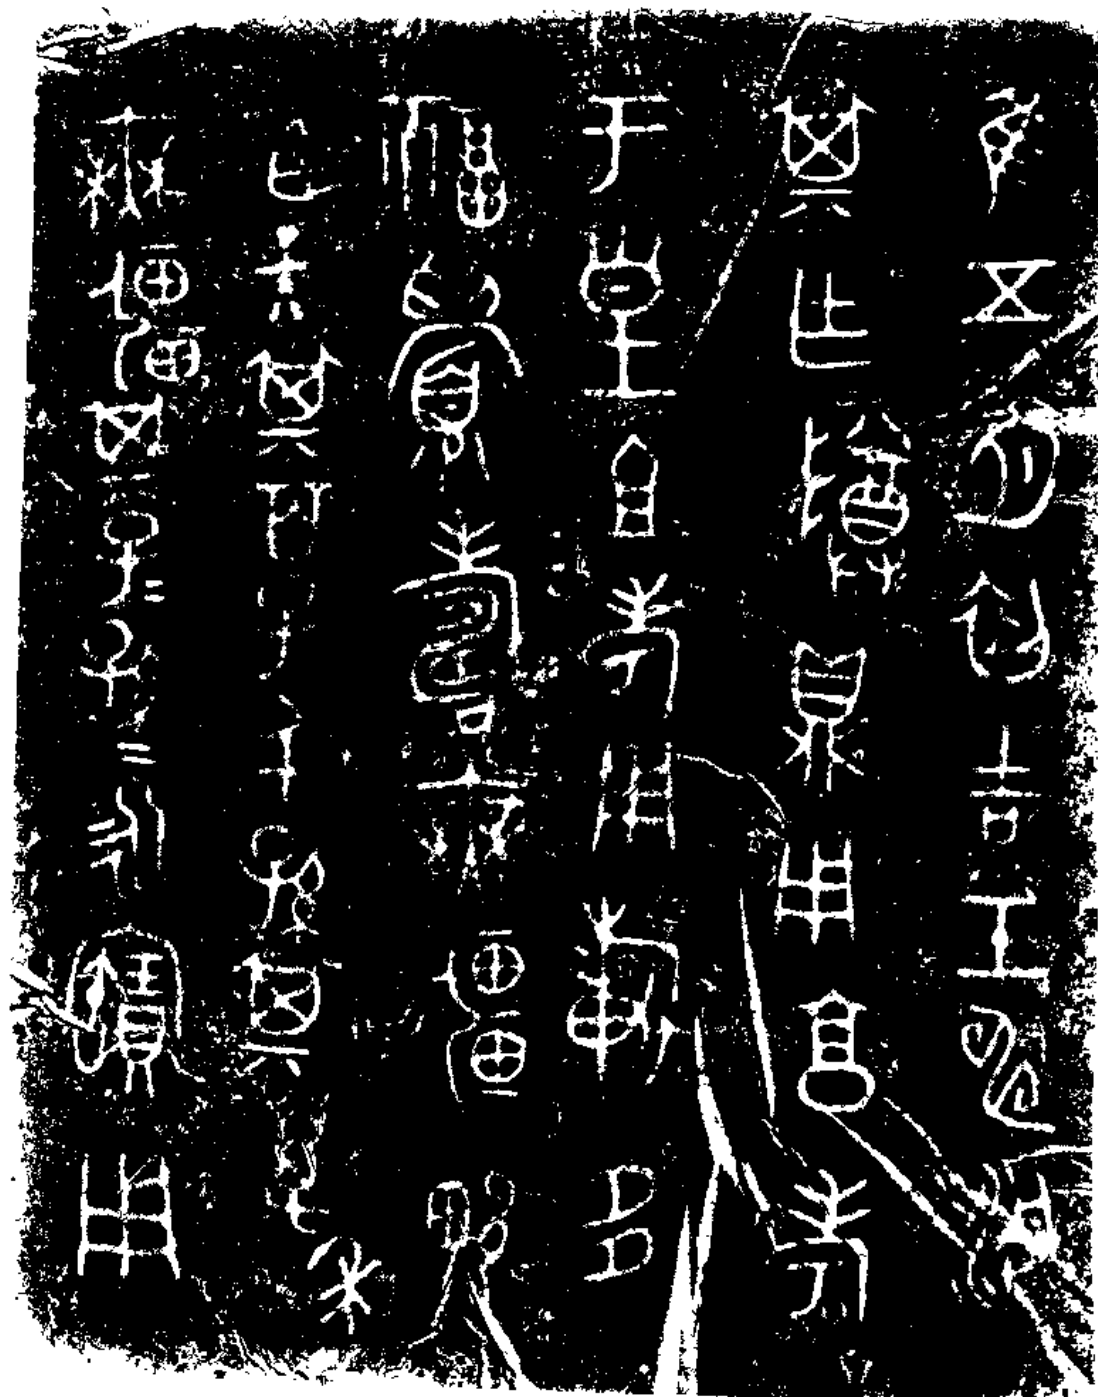 隹五月初吉壬申梁
其乍尊鼎用享考
于皇且考用祈多
福眉壽無疆畯
臣天其百子千孫其萬年
無疆其子=孫=永寶用